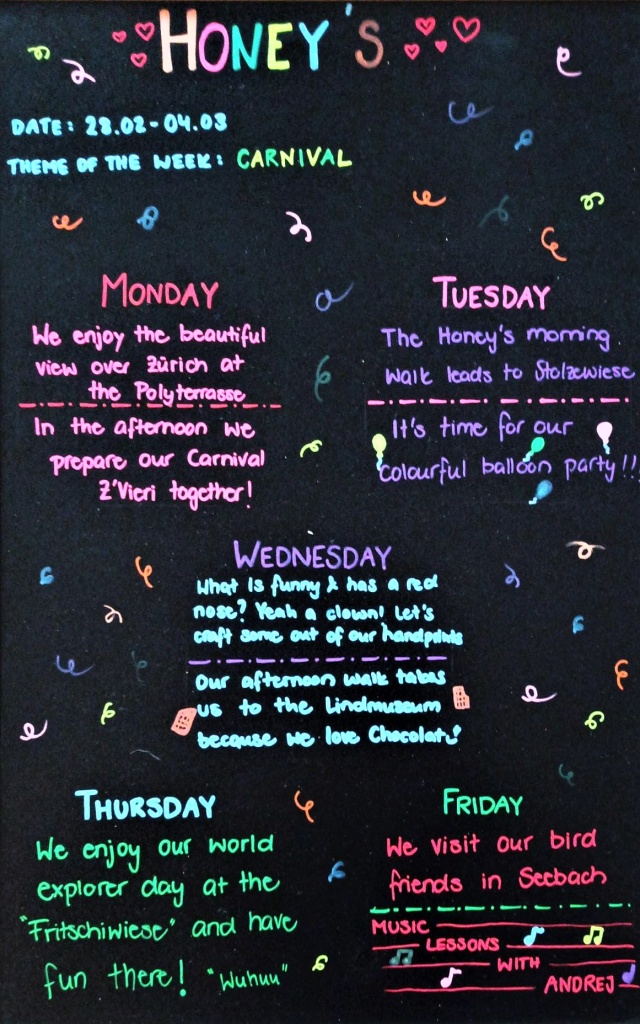 HONEY'S
DATE: 28.02-04.03
THEME OF THE WEEK: CARNIVAL
MONDAY
We enjoy the beautiful
view over Zürich at
the Polyterrasse
In the afternoon we
prepare our Carnival
Z'Vieri together!
TUESDAY
The Honey's morning
walk leads to Stolzewiese
It's time for our
colourful balloon party!!!
WEDNESDAY
What is funny & has a red
nose? Yeah a clown! Let's
craft some out of our handprints
Our afternoon walk takes
us to the Lindmuseum
because we love Chocolat!
THURSDAY
We enjoy our world
explorer day at the
"Fritschiwiese" and have
fun there! "Wuhuu"
FRIDAY
We visit our bird
friends in Seebach
MUSIC
LESSONS
WITH
ANDREJ